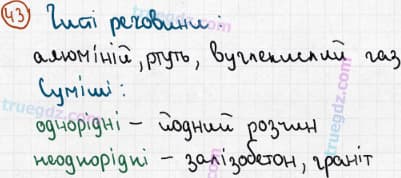 43 Чисті речовини:
алюміній, ртуть, вуглекислий газ
Суміші:
однорідні – йодний розчин
неоднорідні – залізобетон, граніт
truegdz.com
truegdz.com